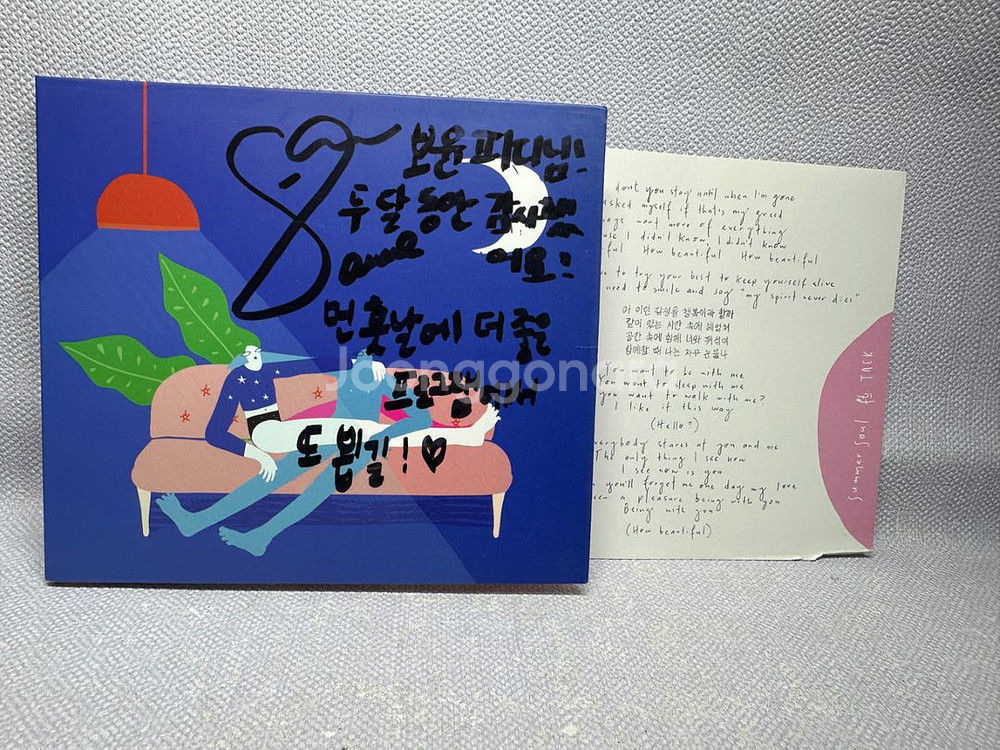 보윤 피디님!
두 달 동안 감사했
어요!
먼 훗날에 더 좋은
프로그램에서
또 뵙길! ♡
Joonggong
dont you stay until when I'm gone
asked myself if that's my greed
want more of everything
I didn't know, I didn't know
How beautiful How beautiful
to try your best to keep yourself alive
need to smile and say "my spirit never dies"
아 이런 감정을 행복이라 할까
같이 있는 시간 속에
공간 속에 함께 너와
함께할 때 나는 자꾸 눈물나
want to be with me
you want to sleep with me
you want to walk with me?
I like it this way
(Hello?)
everybody stares at you and me
The only thing I see now
I see now is you
you'll forget me one day my love
been a pleasure being with you
Being with you
(How beautiful)
Summer Soul ft TAEK